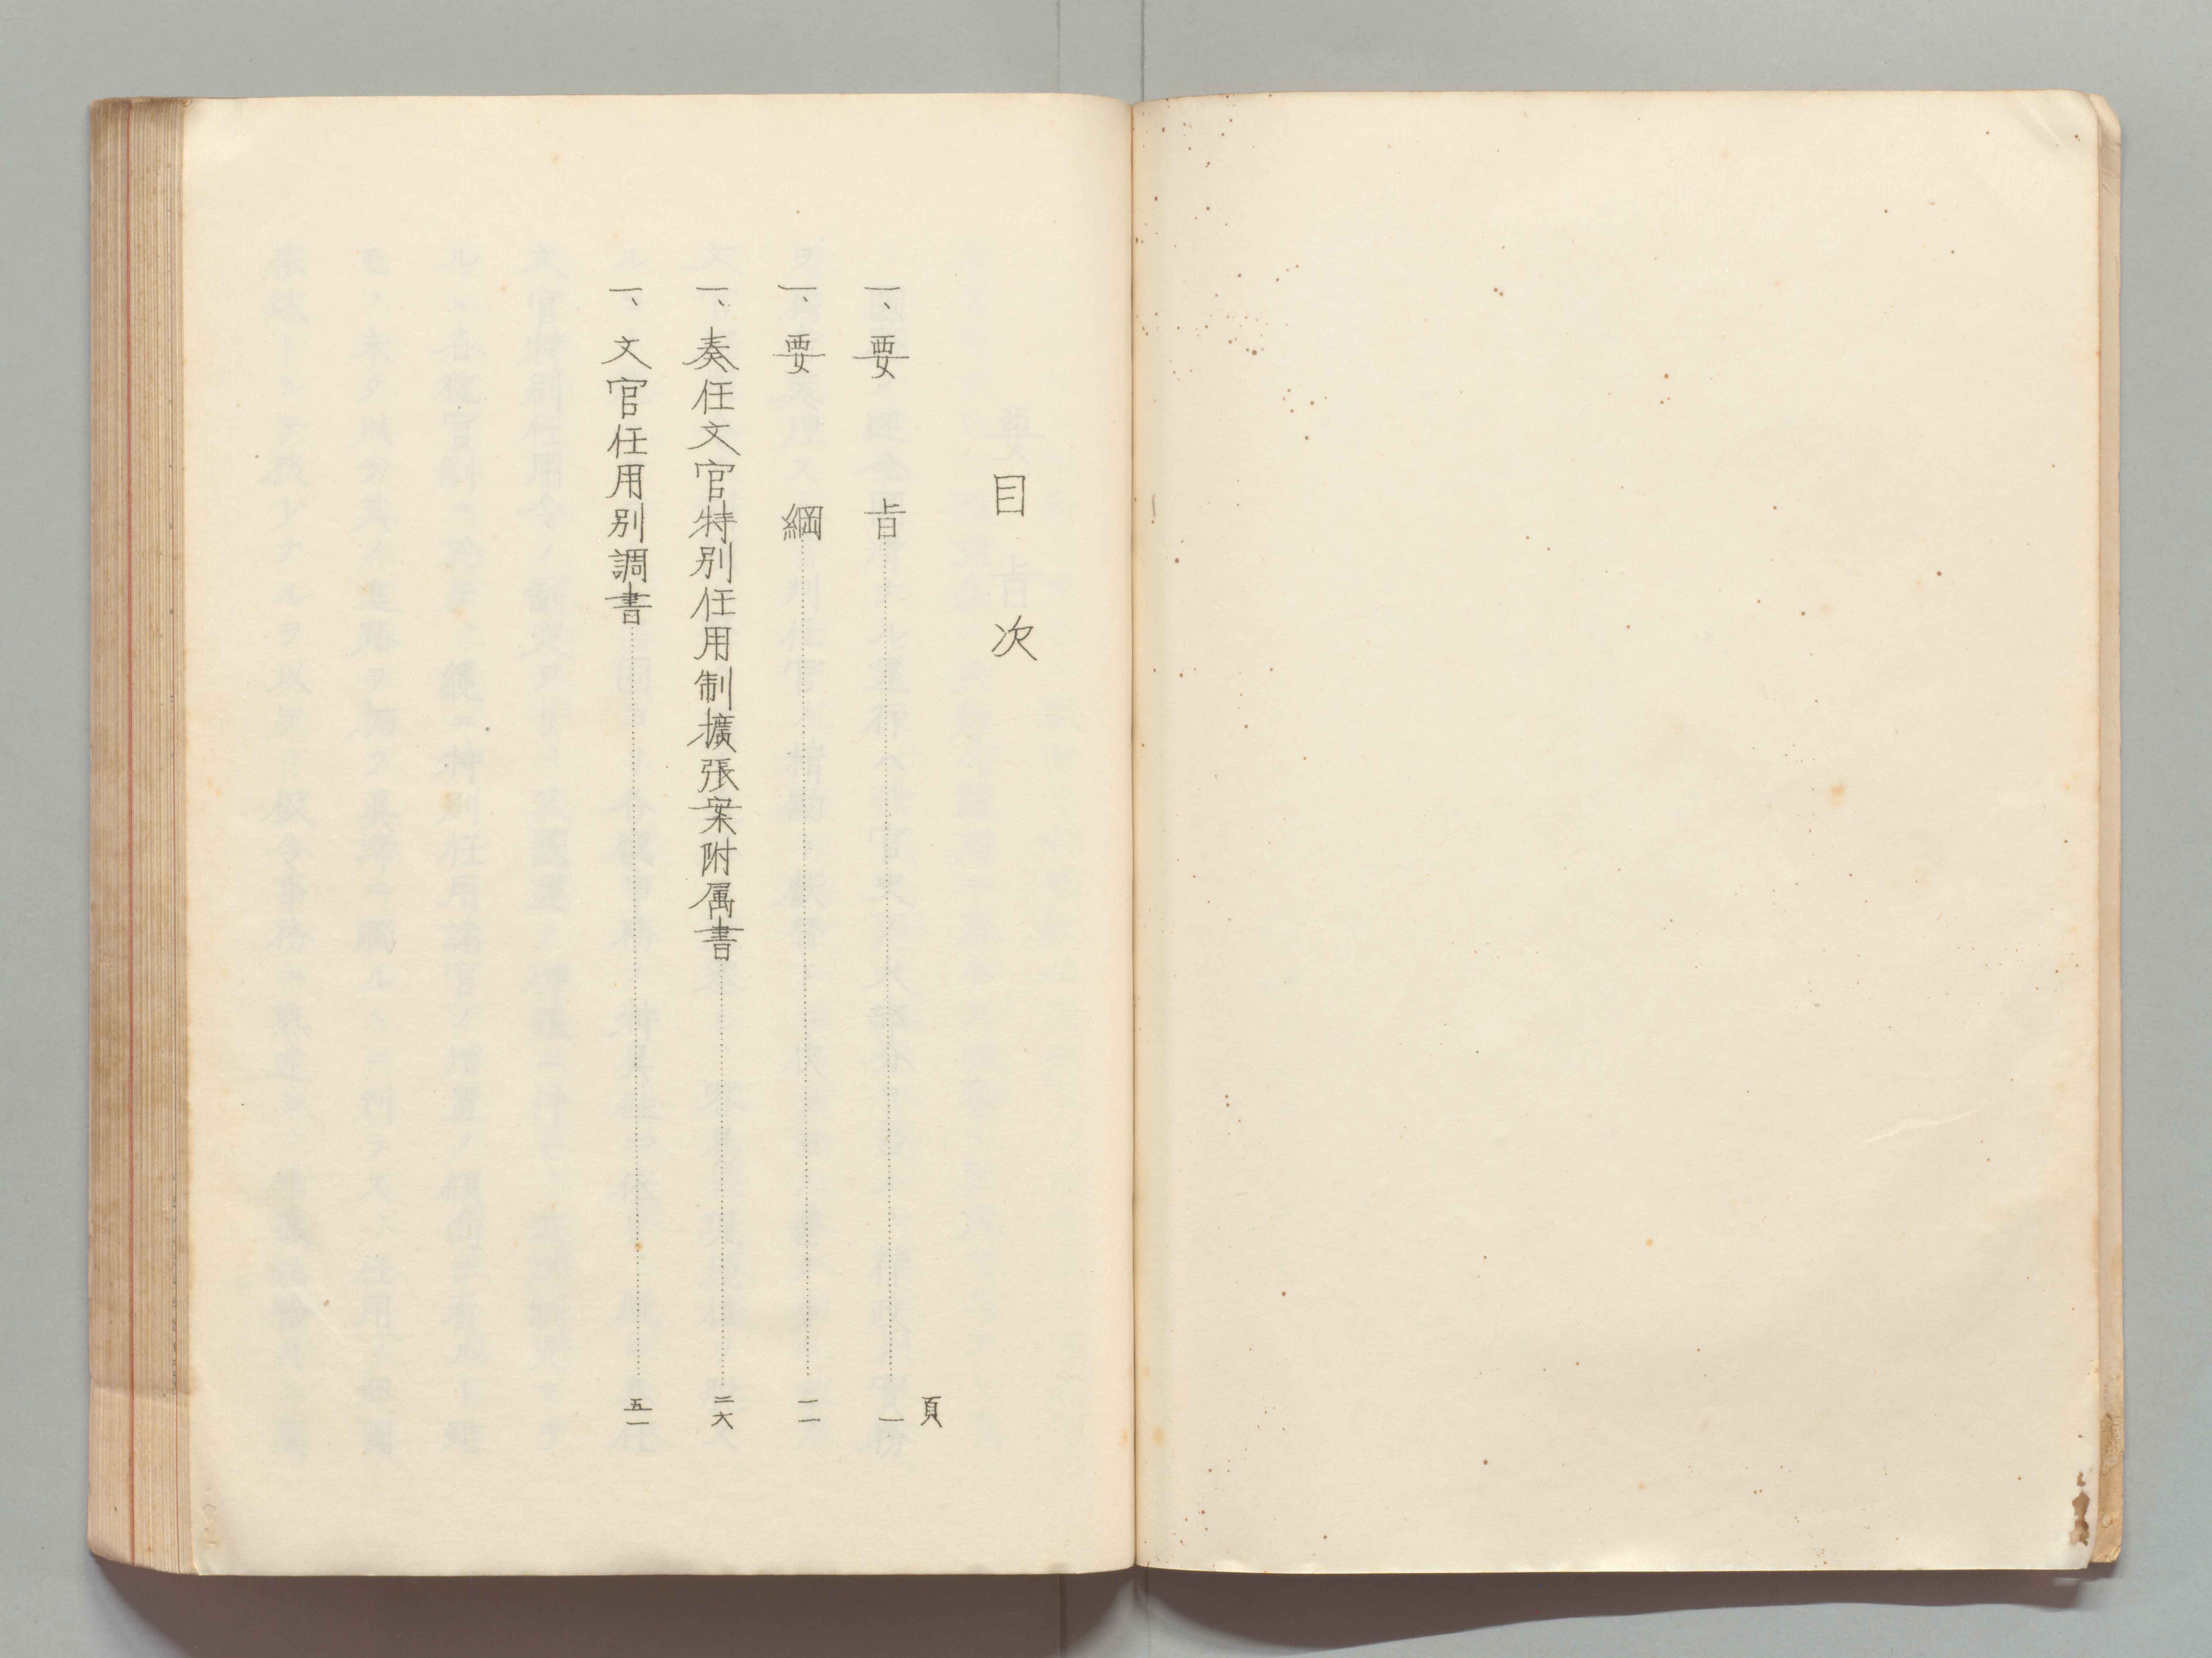 目次
頁
一、要旨…………一
一、要綱…………一一
一、奏任文官特別任用制擴張案附属書…………二六
一、文官任用別調書…………五一